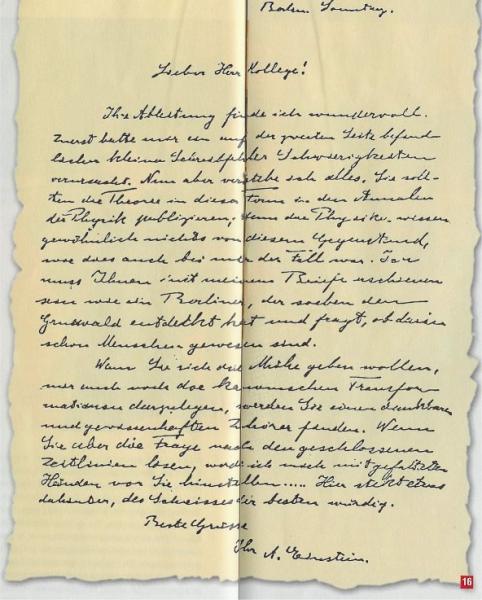 Berlin. Sonntag.
Lieber Herr Kollege!
Ihre Ableitung finde ich wundervoll.
Zuerst hatte mir ein auf der zweiten Seite befind-
licher kleiner Schreibfehler Schwierigkeiten
verursacht. Nun aber verstehe ich alles. Sie soll-
ten die Theorie in dieser Form in den Annalen
der Physik publizieren; denn die Physiker wissen
gewöhnlich nichts von diesem Gegenstand,
wie dies auch bei mir der Fall war. Ich
muss Ihnen mit meinem Briefe erschienen
sein wie ein Berliner, der soeben den
Grunewald entdeckt hat und fragt, ob darin
schon Menschen gewesen sind.
Wenn Sie sich die Mühe geben wollen,
mir auch noch die kanonischen Transfor-
mationen darzulegen, werden Sie einen dankbaren
und gewissenhaften Zuhörer finden. Wenn
Sie aber die Frage nach den geschlossenen
Zeitlinien lösen, werde ich mich mit gefalteten
Händen vor Sie hinstellen..... Hier steckt etwas
dahinter, des Schweisses der Besten würdig.
Beste Grüsse
Ihr A. Einstein.
16